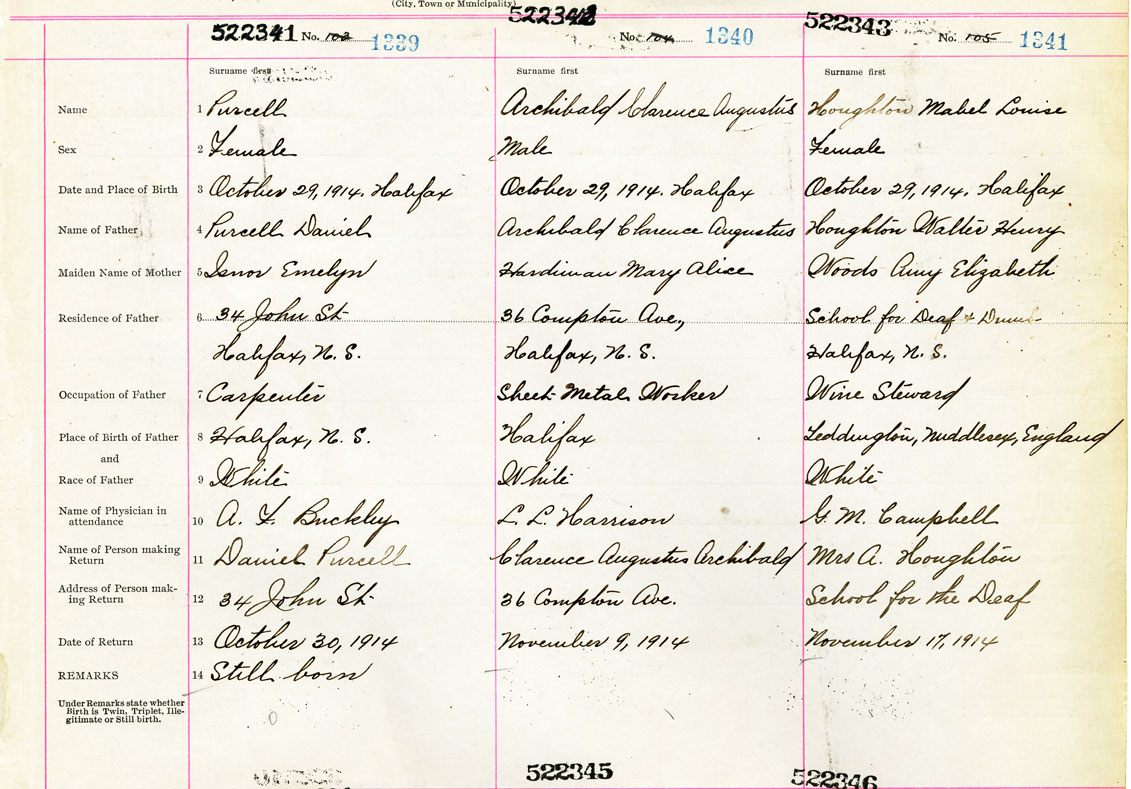 (City, Town or Municipality)
522341 No. 103 1339 522342 No. 104 1340 522343 No. 105 1341
Surname first Surname first Surname first
Name 1 Purcell Archibald Clarence Augustus Houghton Mabel Louise
Sex 2 Female Male Female
Date and Place of Birth 3 October 29, 1914. Halifax October 29, 1914. Halifax October 29, 1914. Halifax
Name of Father 4 Purcell Daniel Archibald Clarence Augustus Houghton Walter Henry
Maiden Name of Mother 5 Isnor Emelyn Hardiman Mary Alice Woods Amy Elizabeth
Residence of Father 6 34 John St 36 Compton Ave., School for Deaf & Dumb
Halifax, N.S. Halifax, N.S. Halifax, N.S.
Occupation of Father 7 Carpenter Sheet Metal Worker Wine Steward
Place of Birth of Father 8 Halifax, N.S. Halifax Teddington, Middlesex, England
and
Race of Father 9 White White White
Name of Physician in
attendance 10 A. F. Buckley L. L. Harrison G. M. Campbell
Name of Person making
Return 11 Daniel Purcell Clarence Augustus Archibald Mrs A. Houghton
Address of Person mak-
ing Return 12 34 John St 36 Compton Ave. School for the Deaf
Date of Return 13 October 30, 1914 November 9, 1914 November 17, 1914
REMARKS 14 Still born
Under Remarks state whether
Birth is Twin, Triplet, Ille-
gitimate or Still birth.
522345 522346